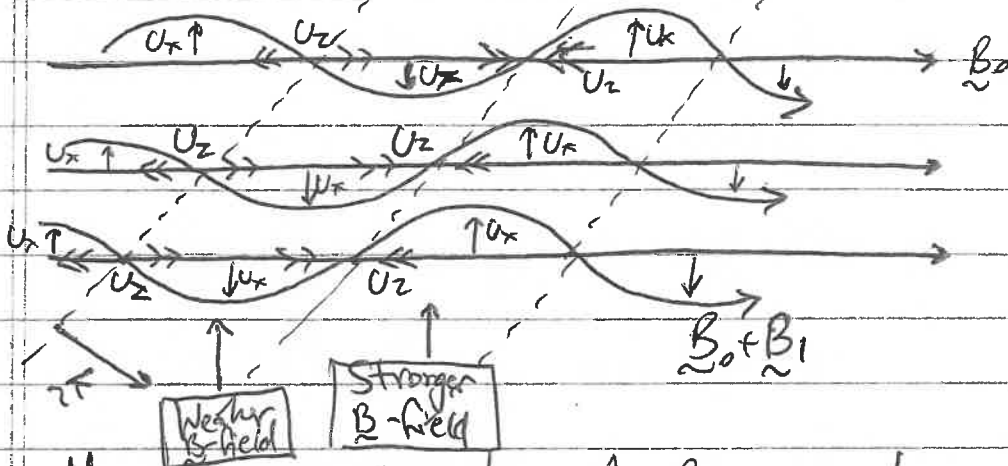 Ux Uz Ux Uz Ux B0
Ux Uz Ux Uz Ux
Ux Uz Ux Uz Ux
B0 + B1
k
Weaker B-field
Stronger B-field